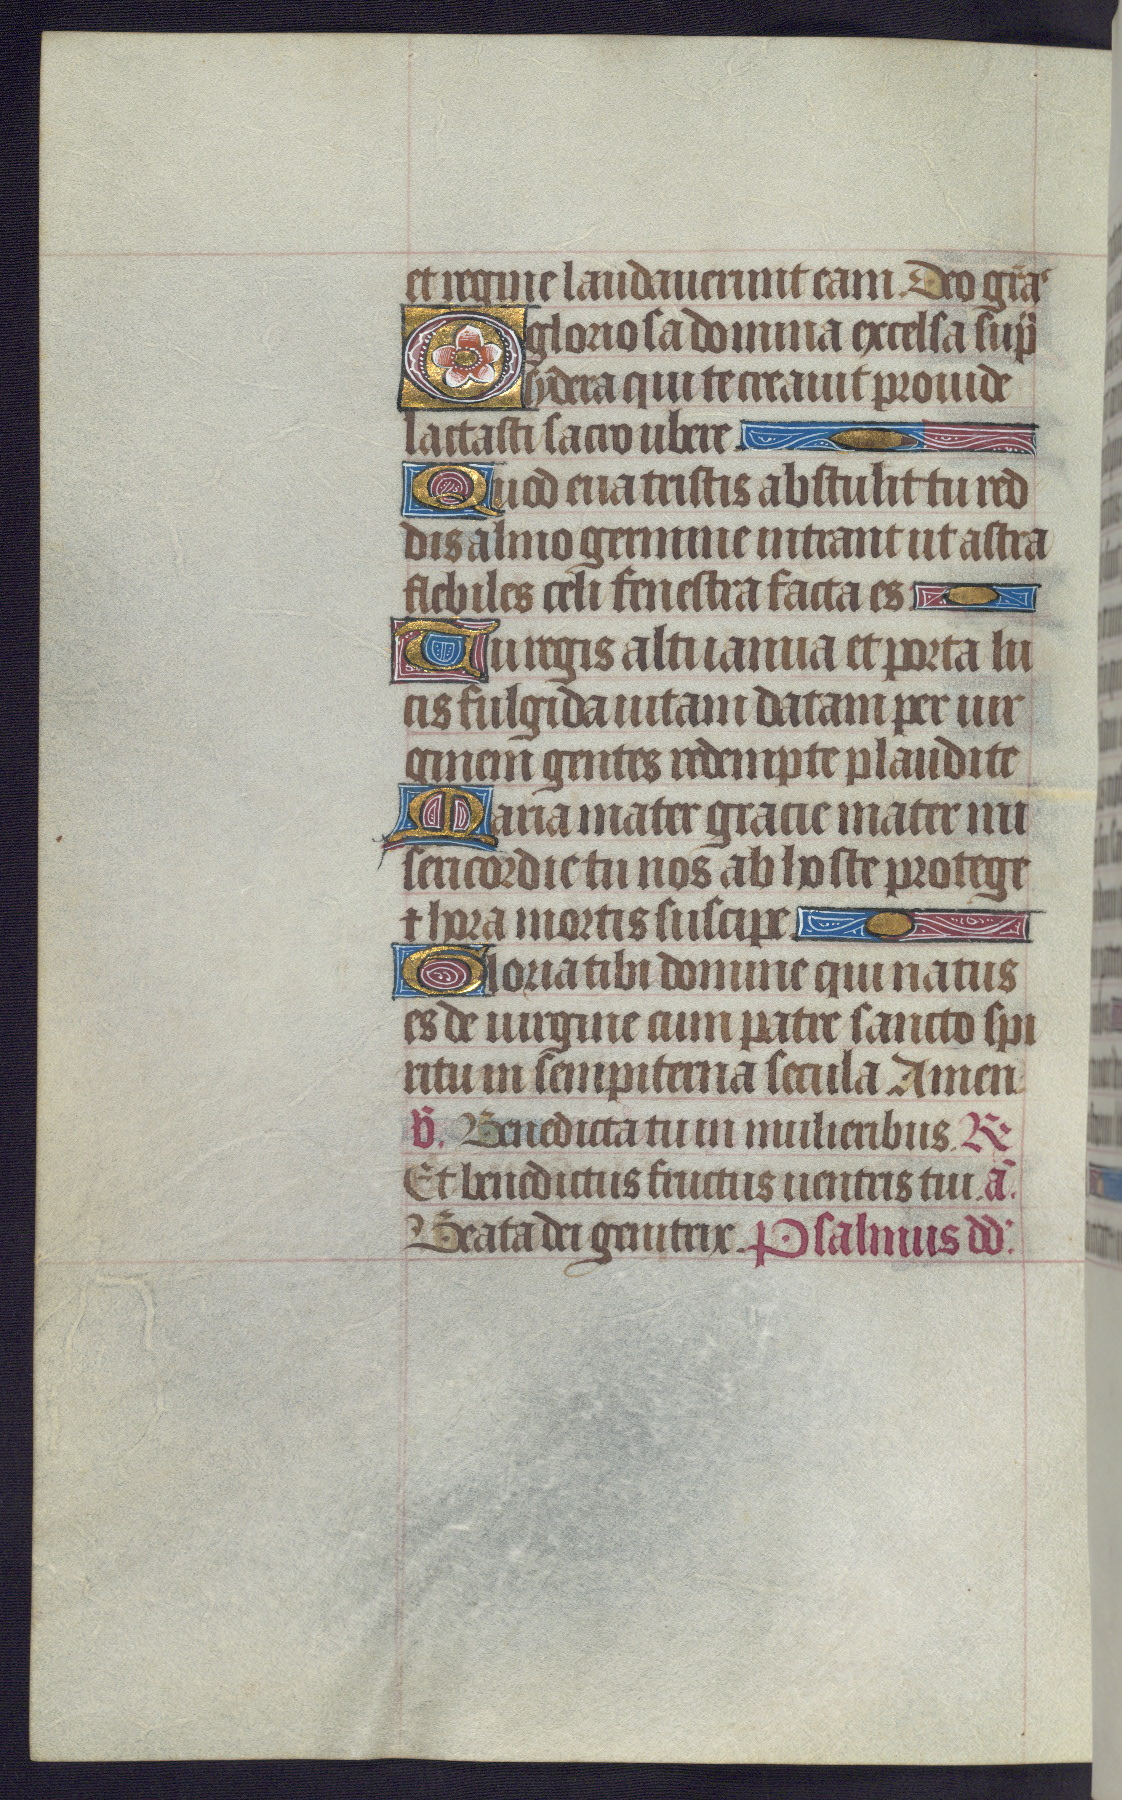 et regine laudauerunt eam. Deo gr̃as
O gloriosa domina excelsa sup̃
sydera qui te creauit prouide
lactasti sacro ubere
Quod eua tristis abstulit tu red
dis almo germine intrant ut astra
flebiles celi fenestra facta es
Tu regis alti ianua et porta lu
cis fulgida uitam datam per uir
ginem gentes redempte plaudite
Maria mater gracie mater mi
sericordie tu nos ab hoste protege
⁊ hora mortis suscipe
Gloria tibi domine qui natus
es de uirgine cum patre sancto spi
ritu in sempiterna secula Amen
v̄. Benedicta tu in mulieribus. R
Et benedictus fructus uentris tui. a͂.
Beata dei genitrix. Psalmus dd̄.